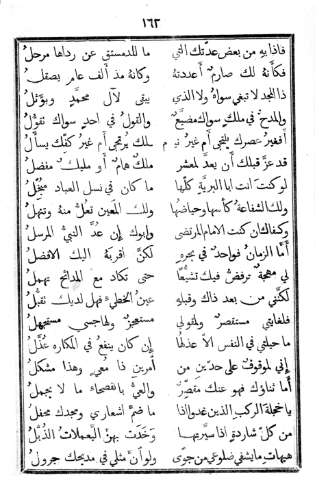 ١٦٢
فاذا به من بعض عدّتك التي ما للدمستق عن رداها مرحلُ
فكأنه لك صارمٌ أعددته وكأنه مذ ألف عامٍ يصقلُ
ذا المجد لا تبغي سواه ولا الذي يبقى لآل محمّدٍ ويؤثّلُ
والمدح في ملك سواك مضيّعٌ والقول في احدٍ سواك تقوّلُ
أفغير عصرك يرتجى أم غير كفّك يسألُ
قد عزّ قبلك أن يعدّ لمعشرٍ ملكٌ همامٌ أو مليكٌ مفضلُ
لو كنت انت ابا البرية كلّها ما كان في نسل العباد مبخّلُ
ولك الشفاعة كأسها وحياضها ولك المعين تعلّ منهُ وتنهلُ
وكفاك ان كنت الامام المرتضى وابوك إن عدّ النبيّ المرسلُ
أمّا الزمان فواحدٌ في نجره لكنّ اقربه اليك الافضلُ
لي مهجةٌ ترفضّ فيك تشيّعًا حتى تكاد مع المدائح تهملُ
لكنني من بعد ذاك وقبله عين الخطيء فهل لديك تقبّلُ
فلغايتي مستقصرٌ ولمقولي مستعجزٌ ولهاجسي مستجهلُ
ما حيلتي في النفس الا عذلها إن كان ينفع في المكاره عذّلُ
إني لموقوفٌ على حدّين من أمرين ذا معيٍ وهذا مشكلُ
أما ثناؤك فهو عنك مقصّرٌ والعيّ بالفصحاء ما لا يجملُ
يا خجلة الركب الذين غدوا اذا ما ضمّ أشعاري ومجدك محفلُ
من كلّ شاردةٍ اذا سيّرتها وخدت بهنّ اليعملات الذّبّلُ
هيهات ما يشفي ضلوعي من جوًى ولو أن مثلي في مديحك جرولُ